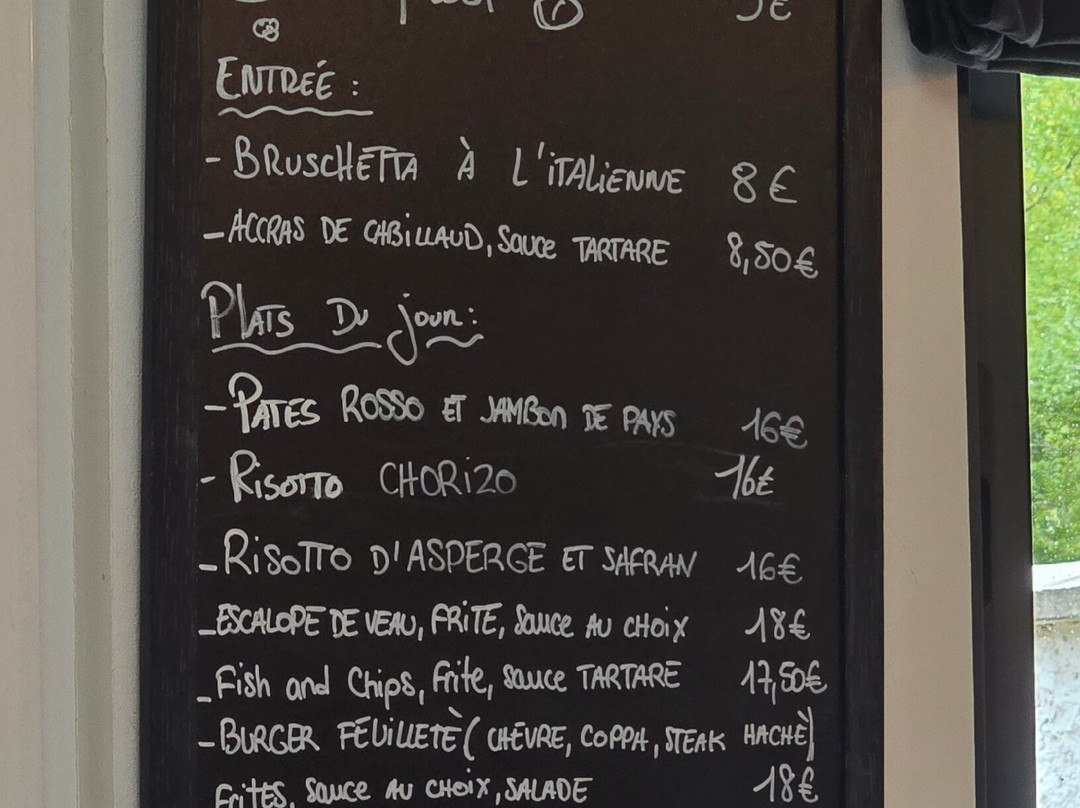 5€
ENTRÉE :
- BRUSCHETTA À L'iTALiENNE 8€
- ACCRAS DE CABiLLAUD, SAUCE TARTARE 8,50€
PLATS DU jour :
- PATES ROSSO ET JAMBON DE PAYS 16€
- RiSOTTO CHORiZO 16€
- RiSOTTO D'ASPERGE ET SAFRAN 16€
- ESCALOPE DE VEAU, FRiTE, Sauce AU CHOiX 18€
- Fish and Chips, Frite, sauce TARTARE 17,50€
- BURGER FEUiLLETÈ ( CHÈVRE, COPPA, STEAK HACHÈ)
FriTES, Sauce AU CHOiX, SALADE 18€